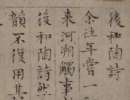 後和陶詩
余往年嘗一
來河朔觸事
後和陶詩
韻不復用其